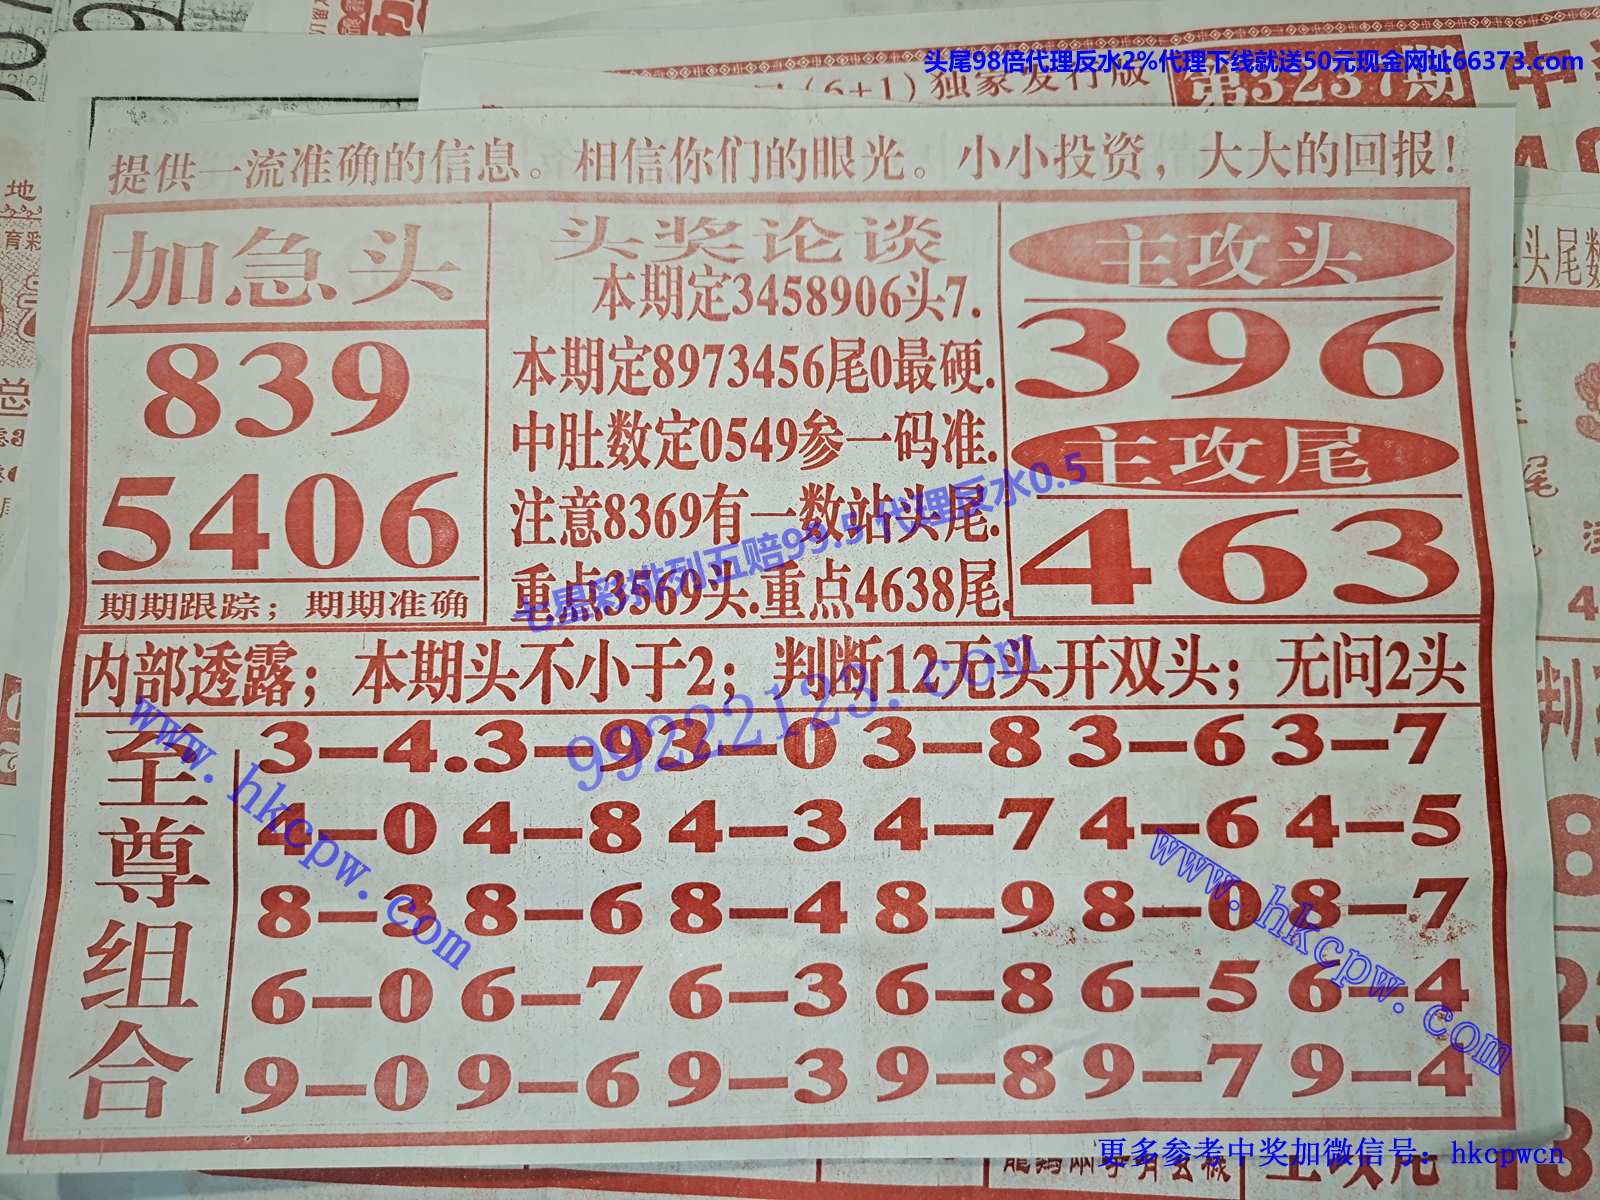 头尾98倍代理反水2%代理下线就送50元现金网址66373.com
(6+1)独家发行版
第3237期
提供一流准确的信息。相信你们的眼光。小小投资，大大的回报！
加急头
839
5406
期期跟踪；期期准确
头奖论谈
本期定3458906头7.
本期定8973456尾0最硬.
中肚数定0549参一码准.
注意8369有一数站头尾.
重点3569头.重点4638尾.
主攻头
396
主攻尾
463
七星彩排列五赔99.5代理反水0.5
内部透露；本期头不小于2；判断12无头开双头；无问2头
99222123.com
至尊组合
3—4.3—9 3—0 3—8 3—6 3—7
4—0 4—8 4—3 4—7 4—6 4—5
8—3 8—6 8—4 8—9 8—0 8—7
6—0 6—7 6—3 6—8 6—5 6—4
9—0 9—6 9—3 9—8 9—7 9—4
www.hkcpw.com
www.hkcpw.com
更多参考中奖加微信号：hkcpwcn